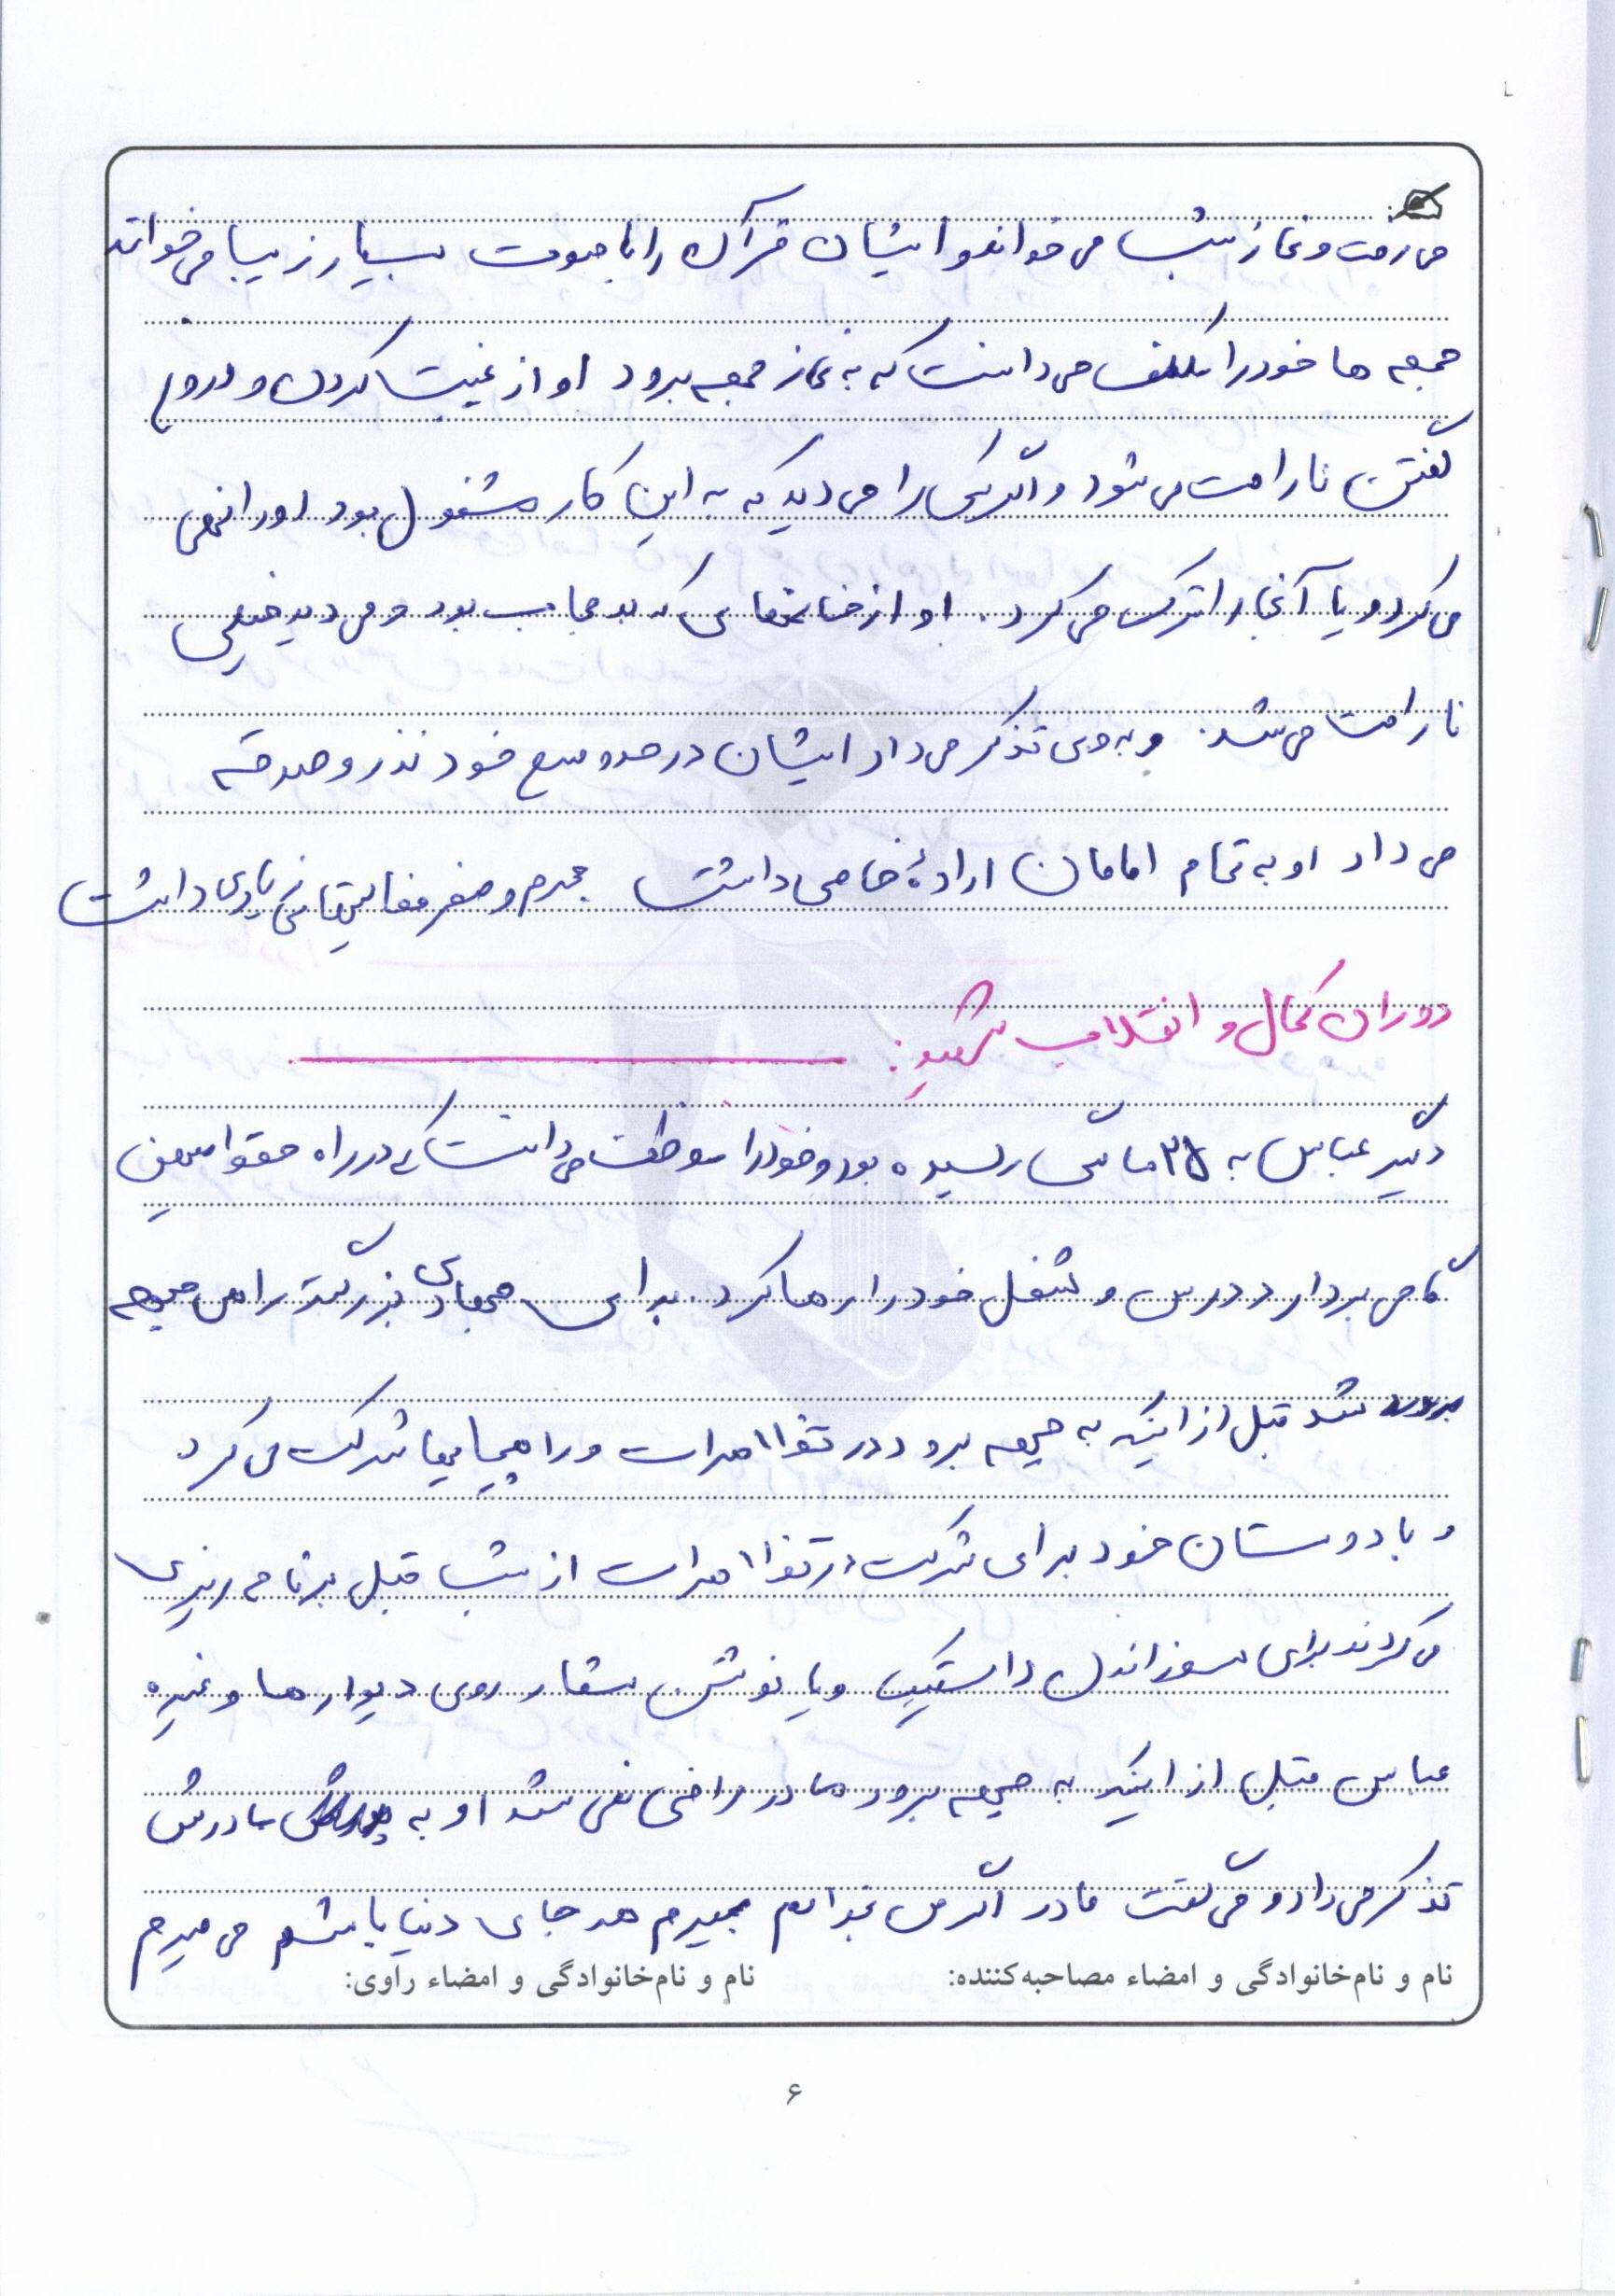 می رفت و نماز شب می خواند و ایشان قرآن را با صوت بسیار زیبا می خواند
جمعه ها خود را مکلف می دانست که به نماز جمعه برود او از غیبت کردن و دروغ
گفتن ناراحت می شود و اگر کسی را می دید که به این کار مشغول بود او را نهی
می کرد و یا آنجا را ترک می کرد. او از خانمهای که بد حجاب بود و می دید خیلی
ناراحت می شد. و به وی تذکر می داد ایشان در حد وسع خود نذر و صدقه
می داد او به تمام امامان ارادهٔ خاصی داشت محرم و صفر فعالیتهای زیادی داشت
دوران کمال و انقلاب شهید:
دیگر عباس به سالگی رسیده بود و خود را موظف می دانست که در راه حق و اسلام
گام بردارد درس و شغل خود را رها کرد. برای جهادی بزرگتر راهی جبهه
شد قبل از اینکه به جبهه برود در تظاهرات و راهپیمایها شرکت می کرد
و با دوستان خود برای شرکت در تظاهرات از شب قبل برنامه ریزی
می کردند برای سوزاندن لاستیک و یا نوشتن شعار روی دیوارها و غیره
عباس قبل از اینکه به جبهه برود مادر راضی نمی شد او به مادرش
تذکر می داد و می گفت مادر اگر من بخواهم بمیرم هر جای دنیا باشم می میرم
نام و نام‌خانوادگی و امضاء مصاحبه‌کننده: نام و نام‌خانوادگی و امضاء راوی:
۶